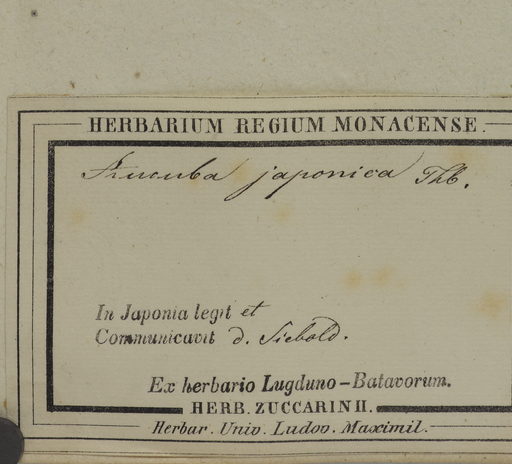 HERBARIUM REGIUM MONACENSE.
Aucuba japonica Thb.
In Japonia legit et
Communicavit d. Siebold.
Ex herbario Lugduno-Batavorum.
HERB. ZUCCARINII.
Herbar. Univ. Ludov. Maximil.